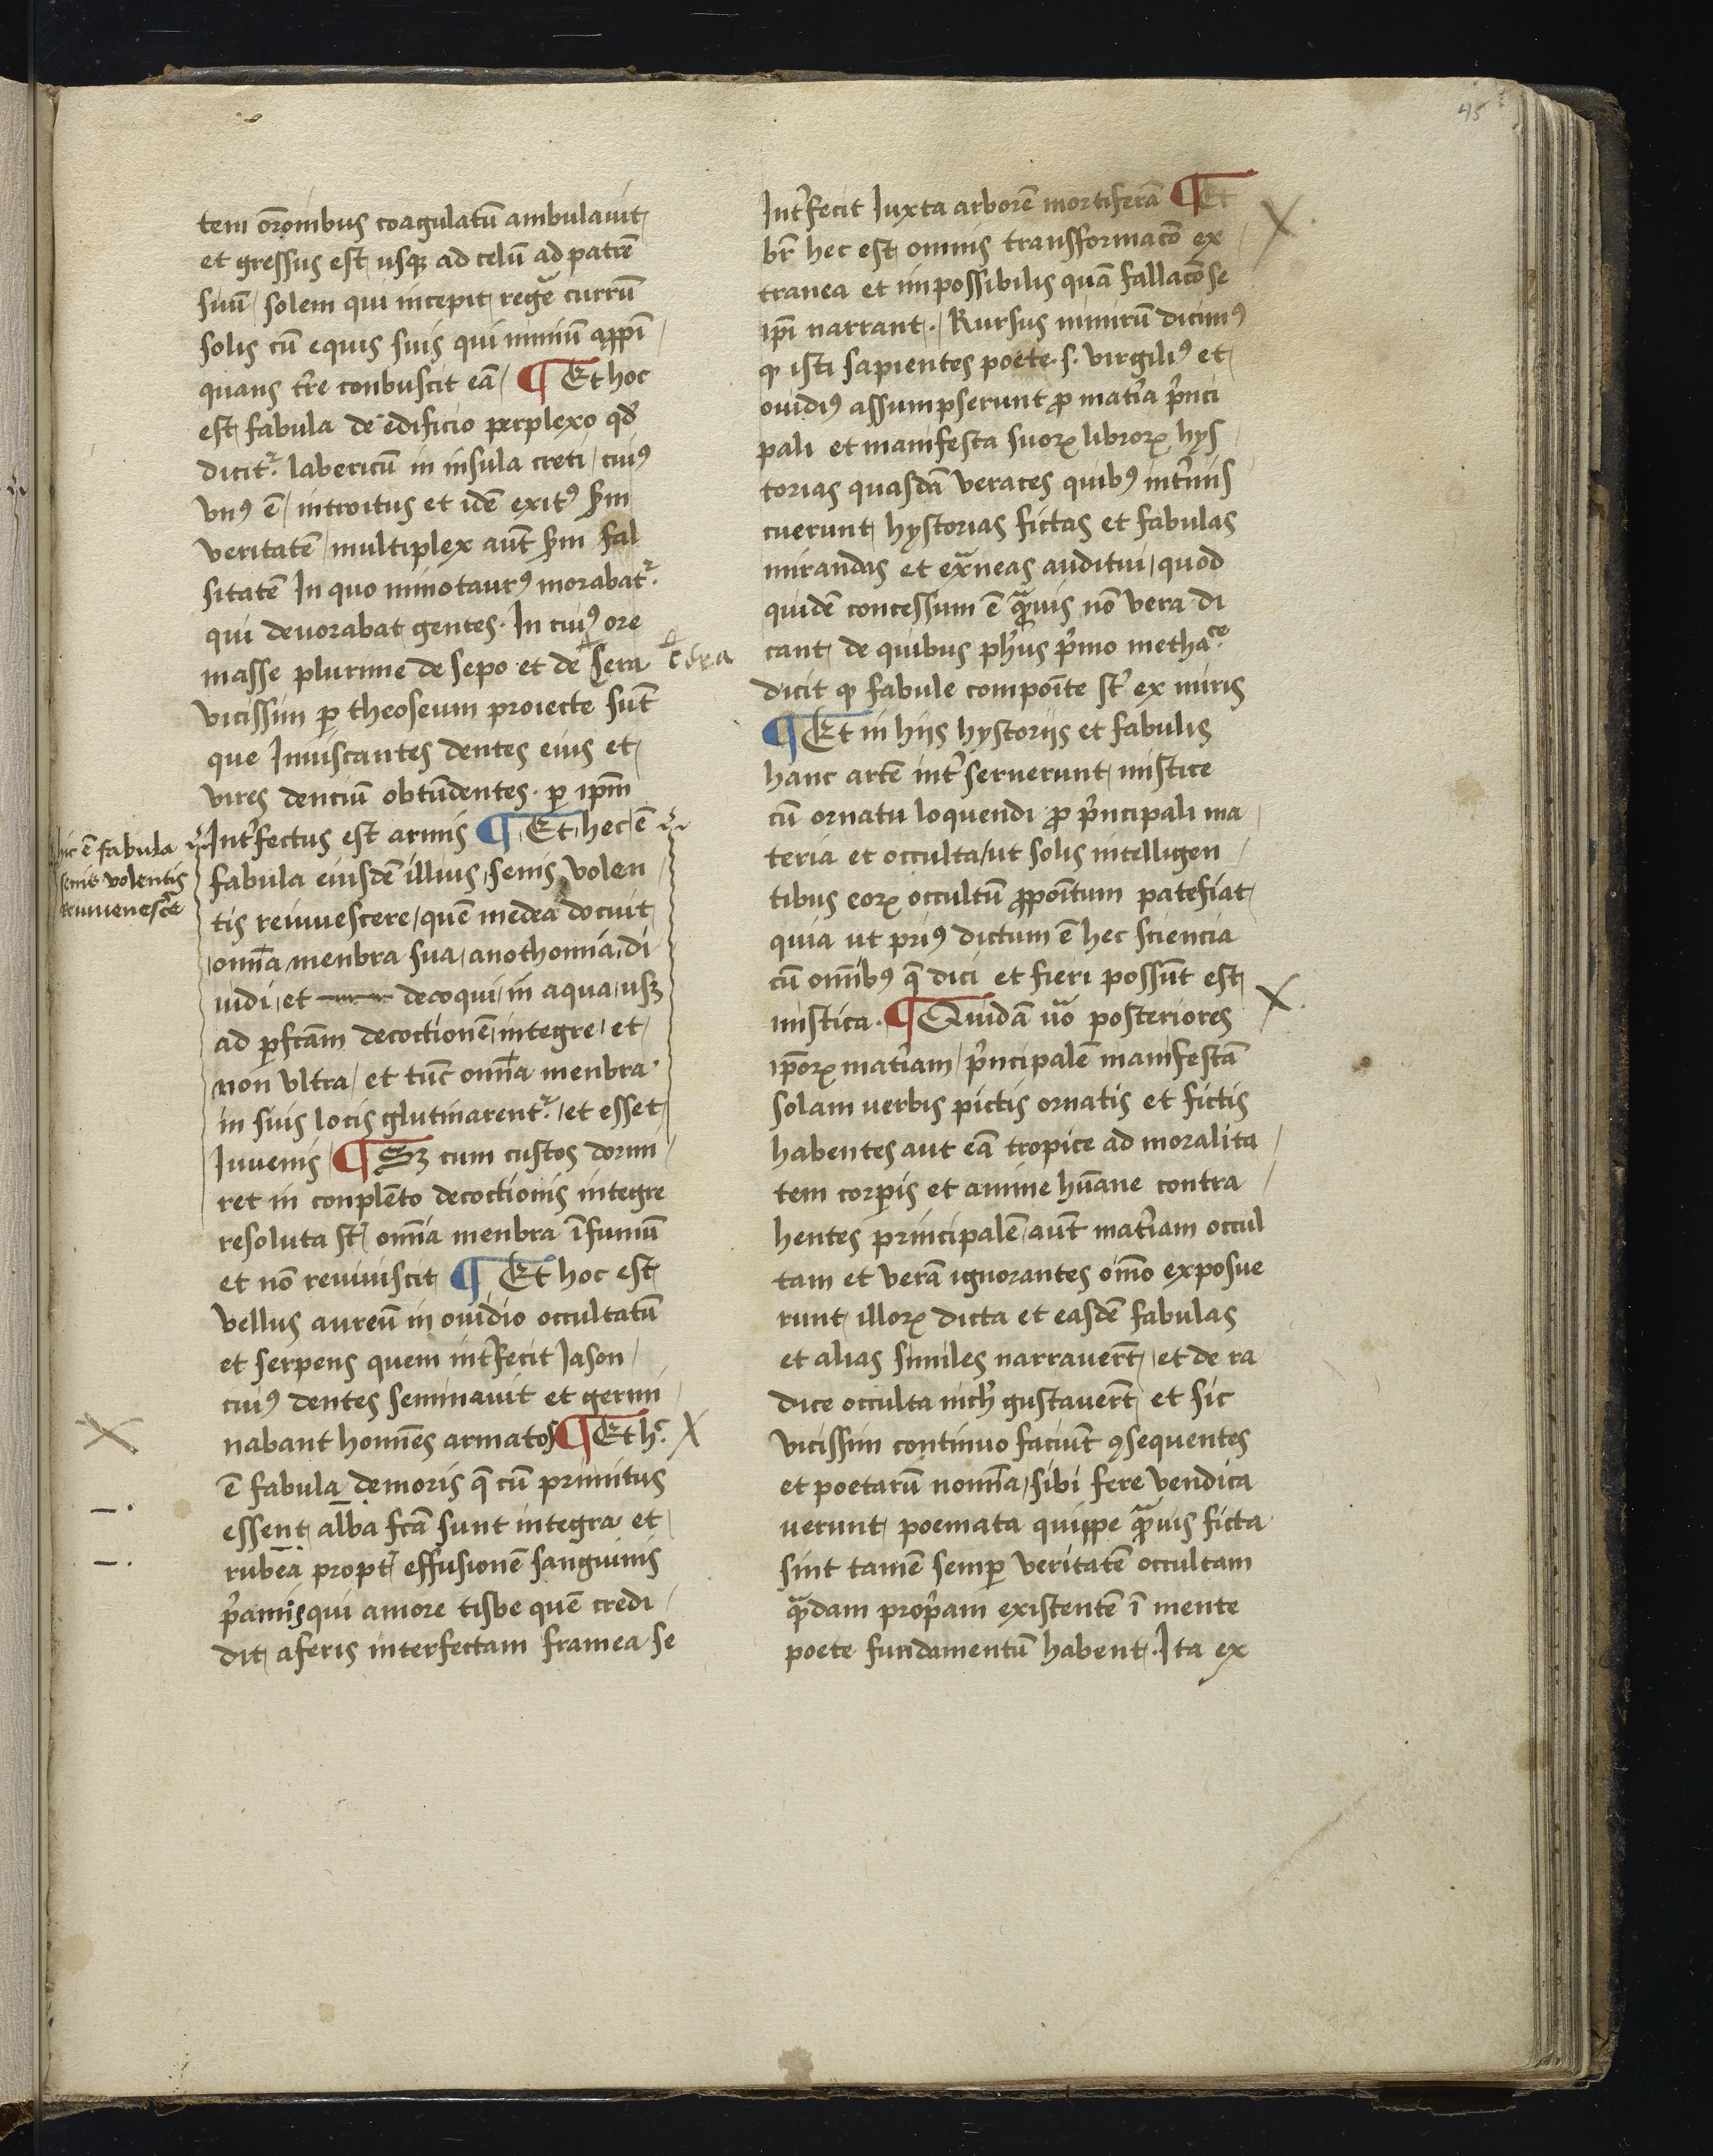 45
tem or̄onibus coagulatū ambulauit
et gressus est usqꝫ ad celū ad patrē
suū solem qui incepit regē currū
solis cū equis suis qui nimiū aꝓpī
quans tr̄e conbuscit eā ¶ Et hoc
est fabula de edificio perplexo qd̄
dicit᷑ labericū in insula creti cuiꝰ
vnꝰ ē introitus et idē exitꝰ scd̄m
veritatē multiplex aūt scd̄m fal
sitatē In quo minotaurꝰ morabat᷑
qui deuorabat gentes. In cuiꝰ ore
masse plurime de sepo et de sera
cera
vicissim ꝑ theoseum proiecte sūt
que Inuiscantes dentes eius et
vires denciū obtūdentes. ꝑ ip̄m
Intˀfectus est armis ¶ Et hec ē
hic ē fabula
senis volentis
reiuuenescˀe
fabula eiusdē illius senis volen
tis reiuuescere quē medea docuit
om̄ia menbra sua anothomia di
uidi et decoqui in aqua usqꝫ
ad ꝑfc̄am decoctionē integre et
non vltra et tūc om̄ia menbra
in suis locis glutinarent᷑ et esset
Iuuenis ¶ Sꝫ cum custos dormi
ret in conplēto decoctionis integre
resoluta st̄ om̄ia menbra ī fumū
et nō reuiuiscit ¶ Et hoc est
vellus aureū in ouidio occultatū
et serpens quem intˀfecit Jason
cuiꝰ dentes seminauit et germi
nabant homīes armatos ¶ Et hͨ
ē fabula de moris q̄ cū primitus
essent alba fc̄a sunt integra et
rubea propt̄ effusionē sanguinis
pˀamis qui amore tisbe quē credi
dit a feris interfectam framea se
Intˀfecit Iuxta arborē mortiferā ¶ Et
br̄ hec est omnis transformac̄o ex
tranea et impossibilis quā fallac̄ose
ip̄i narrant. Rursus nimirū dicimꝰ
ꝙ isti sapientes poete .s. virgiliꝰ et
ouidiꝰ assumpserunt ꝓ matˀia pˀnci
pali et manifesta suoꝝ libroꝝ hys
torias quasdā veraces quibꝰ intˀmis
cuerunt hystorias fictas et fabulas
mirandas et exᷓneas auditui quod
quidē concessum ē qᷓuis nō vera di
cant de quibus ph̄us pˀmo methaͨᵉ
dicit ꝙ fabule compoīte st̄ ex miris
¶ Et in hijs hystorijs et fabulis
hanc artē intˀseruerunt mistice
cū ornatu loquendi ꝓ pˀncipali ma
teria et occulta ut solis intelligen
tibus eoꝝ occultū ꝓpoītum patefiat
quia ut priꝰ dictum ē hec sciencia
cū om̄ibꝰ q̄ dici et fieri possūt est
mistica. ¶ Quidā u̇o posteriores
ip̄oꝝ matˀiam pˀncipalē manifestā
solam uerbis pictis ornatis et fictis
habentes aut eā tropice ad moralita
tem corꝑis et anime hūane contra
hentes principalē aūt matˀiam occul
tam et verā ignorantes om̄o exposue
runt illoꝝ dicta et easdē fabulas
et alias similes narrauer̄t et de ra
dice occulta nich̄ gustauer̄t et sic
vicissim continuo faciūt ꝯsequentes
et poetarū nom̄ia sibi fere vendica
uerunt poemata quippe qᷓuis ficta
sint tamē semꝑ veritatē occultam
qᷓdam propˀam existentē ī mente
poete fundamentū habent. Ita ex